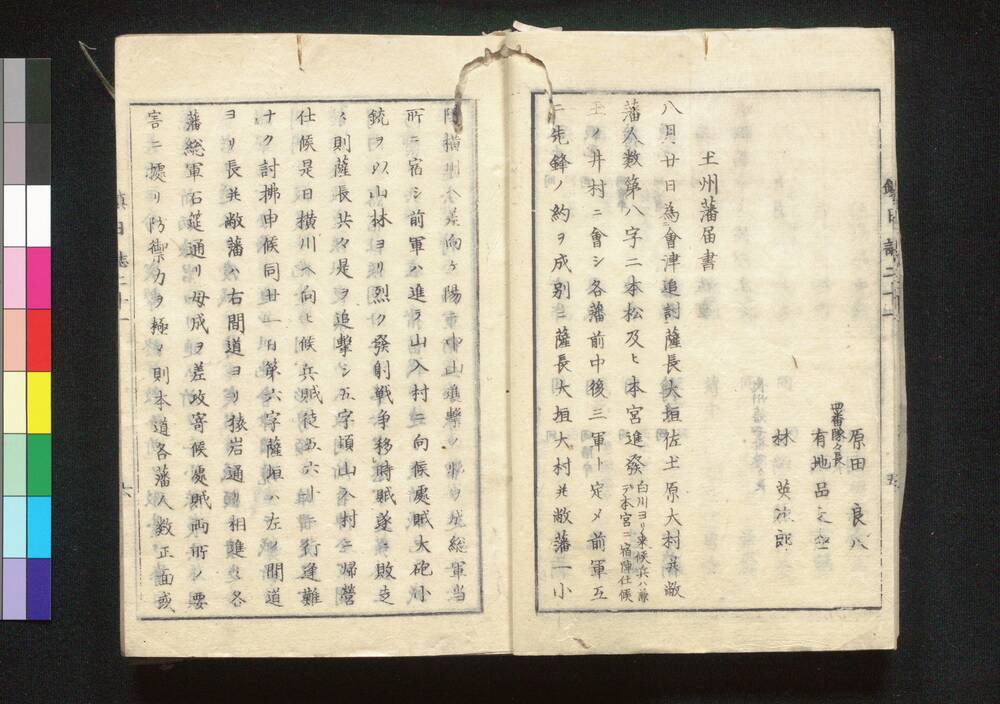 原田良八
四番隊々長
有地品之允
林英
土州藩届書
八月廿日為會津追討薩長大垣佐土原大村共敝
藩人数第八字二本松及ヒ本宮進發白川ヨリ来候兵ハ兼テ本宮ニ宿陣仕候
玉ノ井村ニ會シ各藩前中後三軍ト定メ前軍互
ニ先鋒ノ約ヲ成別ニ薩長大垣大村共敝藩一小
隊横川ヘ差向ケ陽ニ中山進撃ノ勢ヲ成総軍当
所ニ宿シ前軍ハ進テ山入村ニ向候處賊大砲小
銃ヲ以山林ヨリ烈ク發射戦争移時賊遂ニ敗走
則薩長共々是ヲ追撃シ五字頃山入村ニ帰營
仕候是日横川ヘ向ヒ候兵賊徒五六行逢難
ナク討拂申候同廿一日第六字薩垣ハ左ノ間道
ヨリ長共敝藩ハ右間道ヨリ猿岩通リ相進ミ各
藩総軍石筵通リ母成ヲ差攻寄候處賊両所ノ要
害ニ據リ防禦力ヲ極メ則本道各藩人数正面或
鎮日誌二十一
六
鎮日誌二十一
五